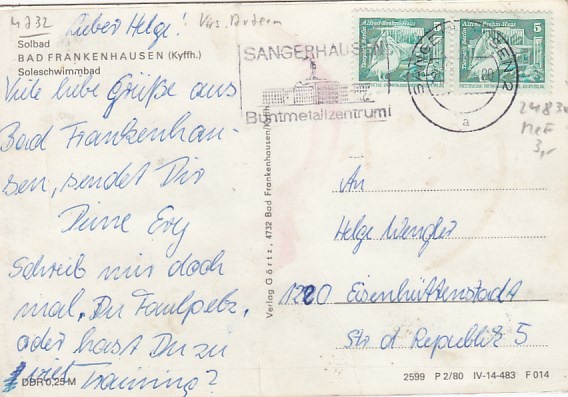 4732
Lieber Helge!
Solbad
BAD FRANKENHAUSEN (Kyffh.)
Soleschwimmbad
Viele liebe Grüße aus
Bad Frankenhau-
sen, sendet Dir
Deine Evy
Schreib mir doch
mal, Du Faulpelz,
oder hast Du zu
viel Training?
DBR 0,25 M
Verlag Görtz, 4732 Bad Frankenhausen/Kyffh.
SANGERHAUSEN
Buntmetallzentrum!
5
5
a
24834
MeF
3,-
An
Helge Wengler
1220 Eisenhüttenstadt
Str d Republik 5
2599 P 2/80 IV-14-483 F 014